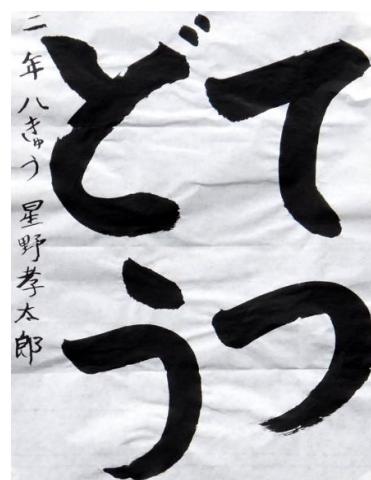 てつ
どう
二年 八きゅう 星野孝太郎